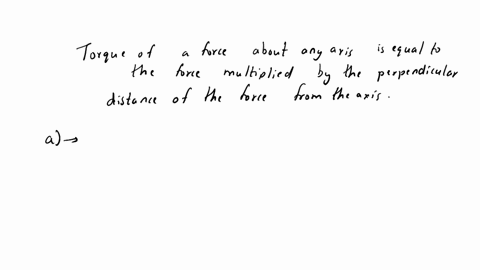 Torque of a force about any axis is equal to
the force multiplied by the perpendicular
distance of the force from the axis.
a) →